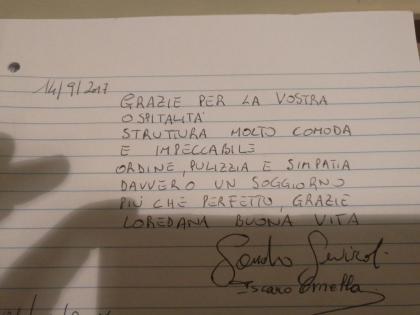 14/9/2017
GRAZIE PER LA VOSTRA
OSPITALITA'
STRUTTURA MOLTO COMODA
E IMPECCABILE
ORDINE, PULIZZIA E SIMPATIA
DAVVERO UN SOGGIORNO
PIU' CHE PERFETTO, GRAZIE
LOREDANA BUONA VITA
Sandro
Iscaro Ornella